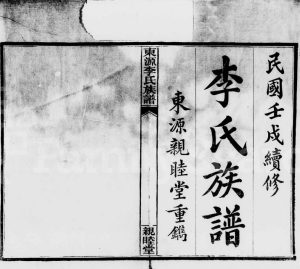 民國壬戌續修
李氏族譜
東源親睦堂重鐫
東源李氏族譜
親睦堂